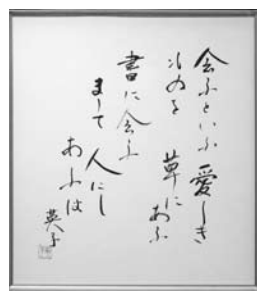 会ふといふ 愛しき
ものを 草にあふ
書に会ふ
まして 人にし
あふは
英子